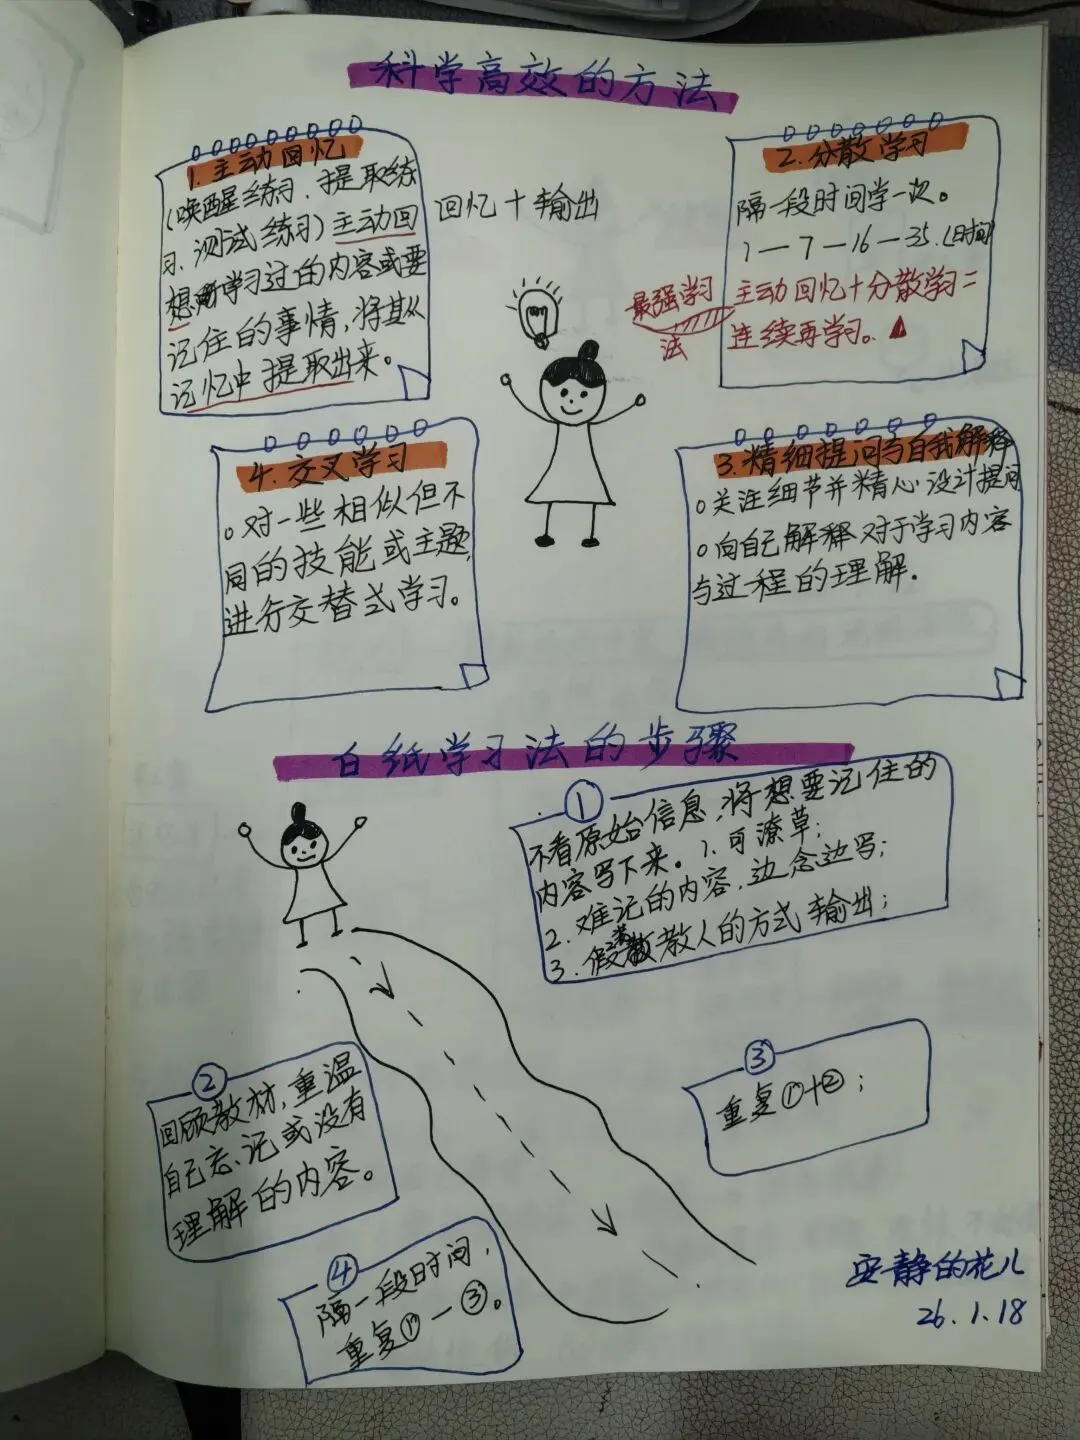 科学高效的方法
1. 主动回忆
(唤醒练习、提取练
习、测试练习)主动回
想学习过的内容或要
记住的事情,将其从
记忆中提取出来。
回忆+输出
2. 分散学习
隔一段时间学一次。
1—7—16—35.(时间)
主动回忆+分散学习=
连续再学习。
最强学习
法
4. 交叉学习
对一些相似但不
同的技能或主题,
进行交替式学习。
3. 精细提问与自我解释
关注细节并精心设计提问
向自己解释对于学习内容
与过程的理解.
白纸学习法的步骤
①
不看原始信息,将想要记住的
内容写下来。1. 可潦草;
2. 难记的内容,边念边写;
3. 假装教人的方式输出;
②
回顾教材,重温
自己忘、记或没有
理解的内容。
③
重复①+②;
④
隔一段时间,
重复①—③。
安静的花儿
26.1.18